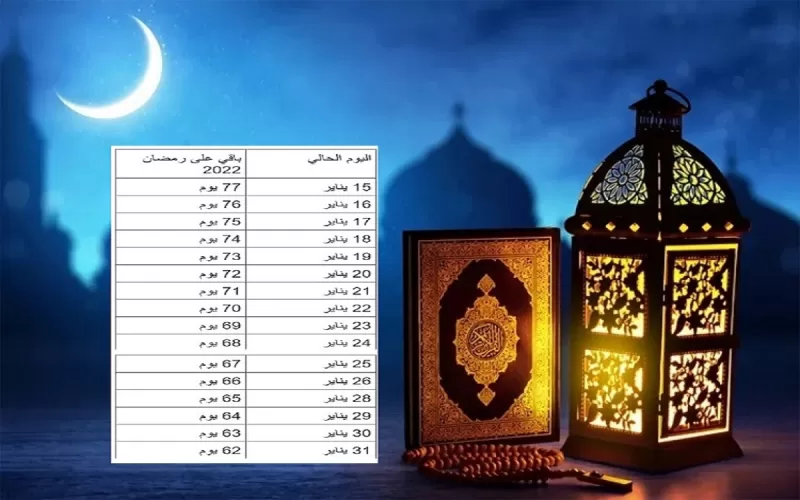 اليوم الحالي باقي على رمضان
2022
15 يناير 77 يوم
16 يناير 76 يوم
17 يناير 75 يوم
18 يناير 74 يوم
19 يناير 73 يوم
20 يناير 72 يوم
21 يناير 71 يوم
22 يناير 70 يوم
23 يناير 69 يوم
24 يناير 68 يوم
25 يناير 67 يوم
26 يناير 66 يوم
28 يناير 65 يوم
29 يناير 64 يوم
30 يناير 63 يوم
31 يناير 62 يوم